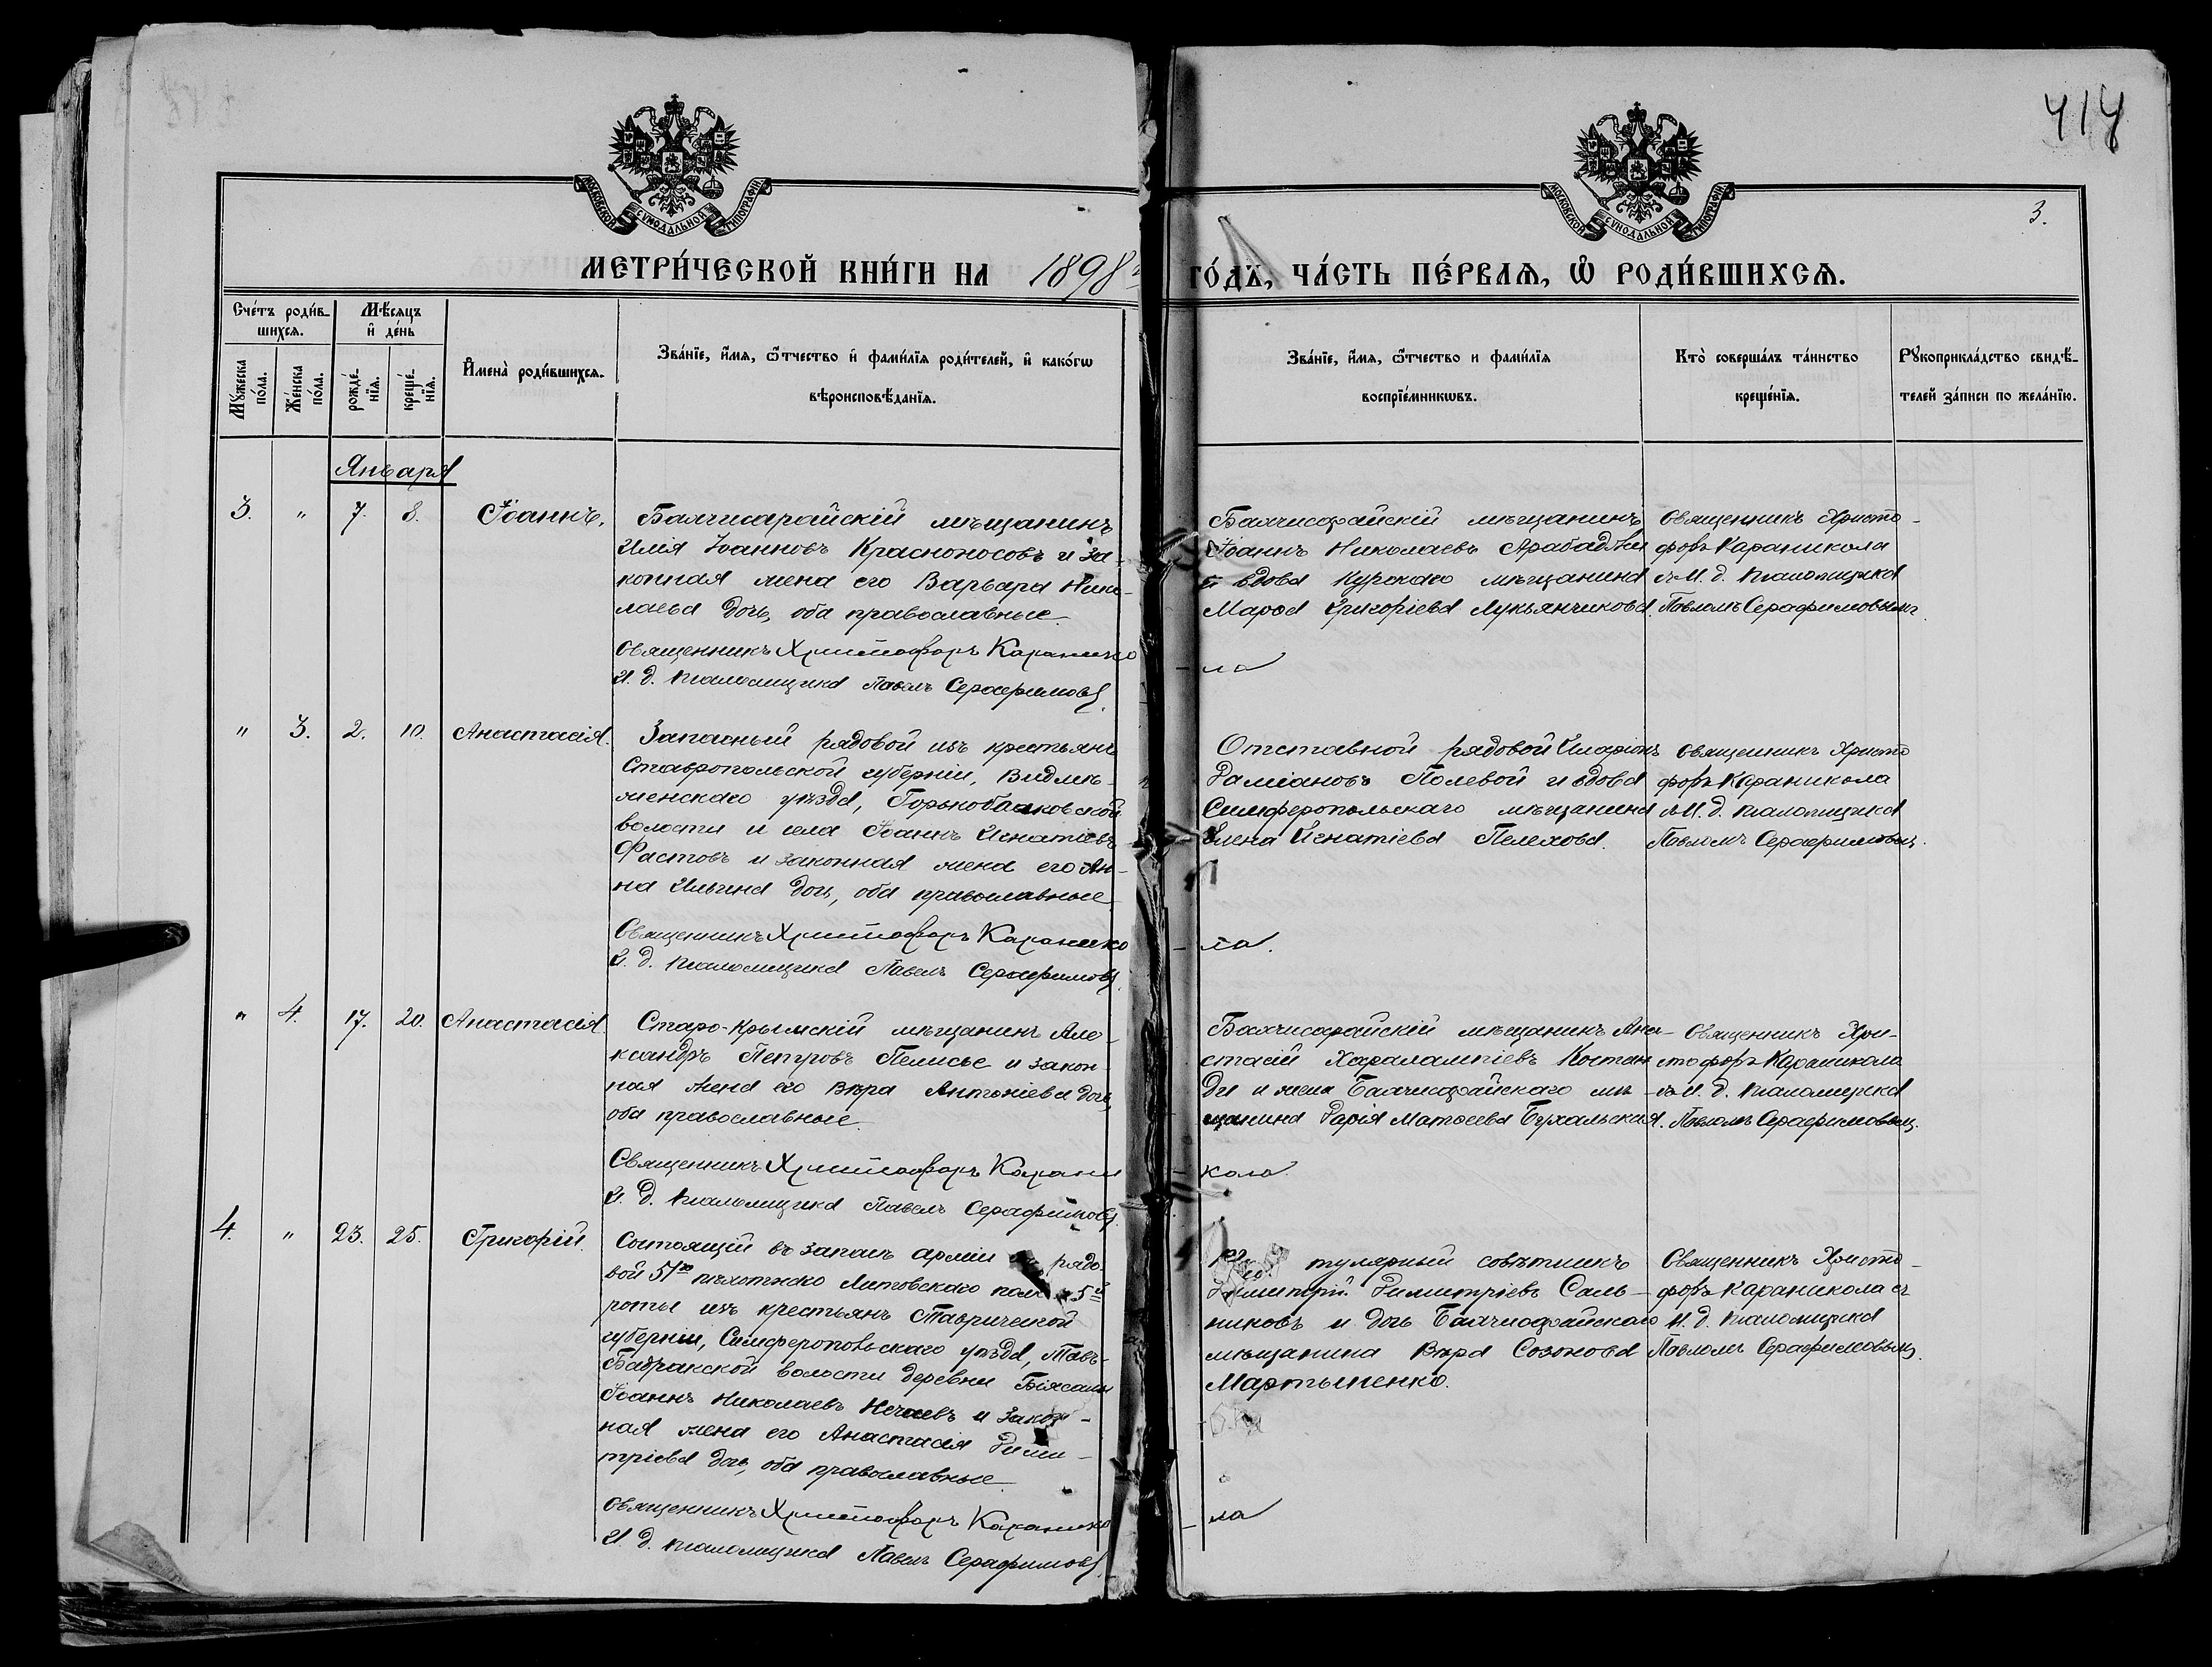 414
3.
МОСКОВСКОЙ СѴНОДАЛЬНОЙ ТИПОГРАФІИ
МОСКОВСКОЙ СѴНОДАЛЬНОЙ ТИПОГРАФІИ
МЕТРИ́ЧЕСКОЙ КНИ́ГИ НА 1898 й ГО́ДЪ, ЧА́СТЬ ПЕ́РВАѦ, Ѡ҆ РОДИ́ВШИХСѦ.
Сче́тъ роди́в-
шихсѧ.
Мѣ́сѧцъ
и҆ де́нь
Мꙋ́жеска
по́ла.
Же́нска
по́ла.
рожде́-
нїѧ.
креще́-
нїѧ.
И҆мена̀ роди́вшихсѧ.
Зва́нїе, и҆́мѧ, ѻ҆́тчество и҆ фами́лїѧ роди́телей, и҆ како́гѡ
вѣроисповѣ́данїѧ.
Зва́нїе, и҆́мѧ, ѻ҆́тчество и фами́лїѧ
воспрїе́мникѡвъ.
Кто̀ соверша́лъ та́инство
креще́нїѧ.
Рꙋкоприкла́дство свидѣ́-
телей за́писи по жела́нїю.
Января
3. " 7. 8. Іоаннъ.
Бахчисарайскій мѣщанинъ
Илія Іоанновъ Красноносовъ и за-
конная жена его Варвара Нико-
лаева дочь, оба православные.
Священникъ Христофоръ Караникола
И. д. псаломщика Павелъ Серафимовъ.
Бахчисарайскій мѣщанинъ
Іоаннъ Николаевъ Арабаджи
и вдова Курскаго мѣщанина
Марѳа Григоріева Лукьянчикова.
Священникъ Христо-
форъ Караникола
съ И. д. псаломщика
Павломъ Серафимовымъ.
" 3. 2. 10. Анастасія.
Запасный рядовой изъ крестьянъ
Ставропольской губерніи,
уѣзда, Горькобалковской
волости и села Іоаннъ Игнатіевъ
Фастовъ и законная жена его Ан-
на Ильина дочь, оба православные.
Священникъ Христофоръ Караникола.
И. д. псаломщика Павелъ Серафимовъ.
Отставной рядовой Иларіонъ
Даміановъ Полевой и вдова
Симферопольскаго мѣщанина
Елена Игнатіева Пелехова.
Священникъ Христо-
форъ Караникола
съ И. д. псаломщика
Павломъ Серафимовымъ.
" 4. 17. 20. Анастасія.
Старо-Крымскій мѣщанинъ Але-
ксандръ Петровъ Пелисье и закон-
ная жена его Вѣра Антоніева дочь,
оба православные.
Священникъ Христофоръ Караникола.
И. д. псаломщика Павелъ Серафимовъ.
Бахчисарайскій мѣщанинъ Ана-
стасій Харалампіевъ Костан-
ди и жена Бахчисарайскаго мѣ-
щанина Дарія Матѳеева Бухальская.
Священникъ Хри-
стофоръ Караникола
съ И. д. псаломщика
Павломъ Серафимовымъ.
4. " 23. 25. Григорій.
Состоящій въ запасѣ арміи рядо-
вой 51го пѣхотнаго Литовскаго полка 5й
роты изъ крестьянъ Таврической
губерніи, Симферопольскаго уѣзда, Тавъ-
Бадракской волости деревни Біясалы
Іоаннъ Николаевъ Нечаевъ и закон-
ная жена его Анастасія Дими-
тріева дочь, оба православные.
Священникъ Христофоръ Караникола
И. д. псаломщика Павелъ Серафимовъ.
тулярный совѣтникъ
Димитрій Димитріевъ Саль-
никовъ и дочь Бахчисарайскаго
мѣщанина Вѣра Созонова
Мартыненко.
Священникъ Христо-
форъ Караникола съ
И. д. псаломщика
Павломъ Серафимовымъ.